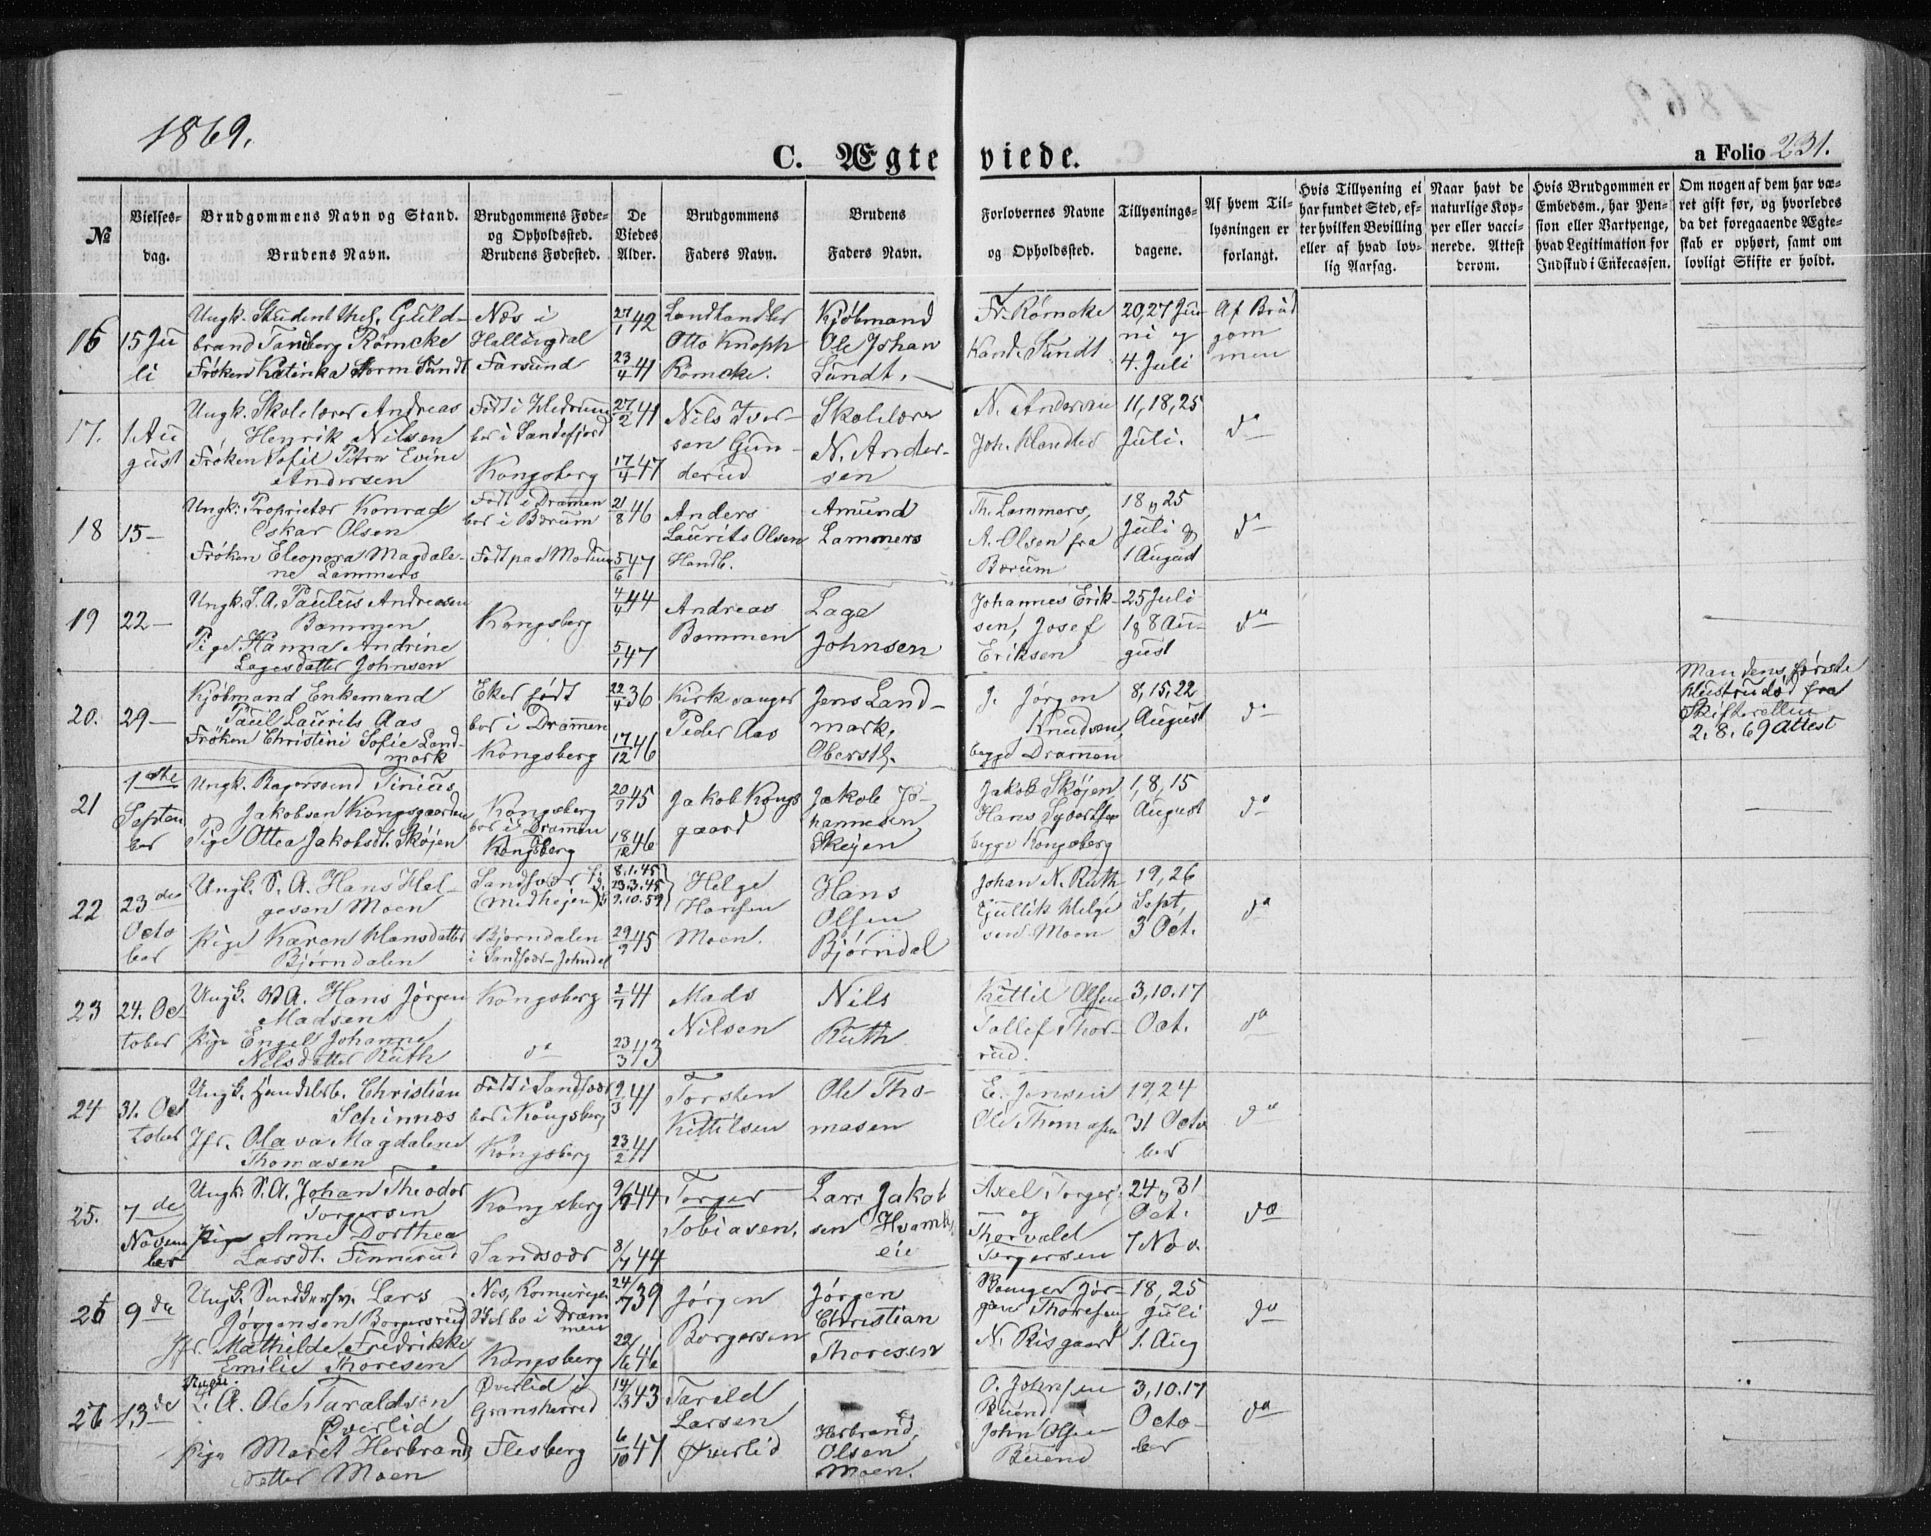 1869.
C. Ægteviede.
a Folio 231.
№
Vielses-
dag.
Brudgommens Navn og Stand.
Brudens Navn.
Brudgommens Føde-
og Opholdssted.
Brudens Fødested.
De
Viedes
Alder.
Brudgommens
Faders Navn.
Brudens
Faders Navn.
Forlovernes Navne
og Opholdssted.
Tillysnings-
dagene.
Af hvem Til-
lysningen er
forlangt.
Hvis Tillysning ei
har fundet Sted, ef-
ter hvilken Bevilling
eller af hvad lov-
lig Aarsag.
Naar havt de
naturlige Kop-
per eller vacci-
nerede. Attest
derom.
Hvis Brudgommen er
Embedsm., har Pen-
sion eller Vartpenge,
hvad Legitimation for
Indskud i Enkecassen.
Om nogen af dem har væ-
ret gift før, og hvorledes
da det foregaaende Ægte-
skab er ophørt, samt om
lovligt Skifte er holdt.
16
15 Ju
li
Ungk. Student Guld-
brand Tandberg Rømcke
Frøken Katinka Storm Sundt
Næs i
Hallingdal
Farsund
27/1 42
23/4 41
Landhandler
Otto Knoph
Rømcke.
Kjøbmand
Ole Johan
Sundt.
Fr. Rømcke
Kand. Sundt
20, 27 Ju-
ni og
4. Juli
Af Brud
gom
men
17.
1 Au
gust
Ungk. Skolelærer Andreas
Henrik Nilsen
Frøken Sofie Petra Evine
Andersen
Født i Hedrum
bor i Sandefjord
Kongsberg
27/2 41
17/4 47
Nils Iver-
sen Gun-
derud
Skolelærer
N. Ander-
sen
N. Andersen
Joh.
11, 18, 25
Juli.
do
18
15 —
Ungk. Proprietær Konrad
Oskar Olsen
Frøken Eleonora Magdale-
ne Lammers
Født i Drammen
bor i Bærum
Født paa Modum
21/8 46
5/6 47
Anders
Laurits Olsen
Handb.
Amund
Lammers
Th. Lammers,
A. Olsen fra
Bærum
18 og 25
Juli og
1 August
do
19
22 —
Ungk. S. A. Paulus Andreasen
Bommen
Pige Hanna Andrine
Lagesdatter Johnsen
Kongsberg
4/4 44
5/1 47
Andreas
Bommen
Lage
Johnsen
Johannes Erik-
sen, Josef
Eriksen
25 Juli
1 og 8 Au-
gust
do
20.
29 —
Kjøbmand Enkemand
Paul Laurits Aas
Frøken Christine Sofie Land-
mark
Eker født
bor i Drammen
Kongsberg
22/4 36
17/12 46
Kirkesanger
Peder Aas
Jens Land-
mark,
Oberstl.
J. Jørgen
Knudsen
begge Drammen
8, 15, 22
August
do
Mandens første
Hustru død fra
Skifteretten
2. 8. 69 Attest
21
1ste
Septem
ber
Ungk. Bagersvend Tinius
Jakobsen Kongsgaarden
og
Pige Ottea Jakobsdt. Skøjen
Kongsberg
bor i Dramen
Kongsberg
20/9 45
18/12 46
Jakob Kongs
gaard
Jakob Jo-
hannesen
Skøjen
Jakob Skøjen
Hans Syvertsen
begge Kongsberg
1, 8, 15
August
do
22
23de
Octo
ber
Ungk. S. A. Hans Hel-
gesen Moen
Pige Karen Hansdatter
Bjørndalen
Sandsvær
Bjørndalen
i Sandsvær – Johndal
8. 1. 45
23. 3. 45
9. 10. 59
29/9 45
Helge
Hansen
Moen.
Hans
Olsen
Bjørndal
Johan N. Ruth
Gullik Helge
sen Moen
19, 26
Sept,
3 Oct.
do
23
24. Oc
tober
Ungk. W. A. Hans Jørgen
Madsen
Pige Engel Johanne
Nilsdatter Ruth
Kongsberg
do
2/7 41
23/3 43
Mads
Nilsen
Nils
Ruth
Kittil Olsen
Tollef Thor-
rud.
3, 10. 17
Oct.
do
24
31. Oc
tober
Ungk. Handelsb. Christian
Schinnæs
Jfr. Olava Magdalene
Thomasen
Født i Sandsvær
bor i Kongsberg
Kongsberg
9/3 41
23/2 41
Torsten
Kittilsen
Ole Tho-
masen
E. Jensen
Ole Thomasen
17, 24
31 Octo
ber
do
25.
7de
Novem
ber
Ungk. S. A. Johan Theodor
Torgersen
Pige Anne Dorthea
Larsdt. Finnerud
Kongsberg
Sandsvær
9/7 44
8/7 44
Torger
Tobiasen.
Lars Jakob
sen Hvamb
eie
Axel Torgers.
og
Thorvald
Torgersen
24 og 31
Oct.
7 Nov.
do
26
9de
Ungk. Lars
Jørgensen Borgersrud
Jfr. Mathilde Fredrikke
Emilie Thoresen
Nes, Romerige
bo i Dram
men
Kongsberg
24/7 39
22/6 46
Jørgen
Borgersen
Jørgen
Christian
Thoresen
Jør-
gen Thoresen
N. Risgaard
18, 25
Juli
1. Aug
do
26
13de
Ungk.
S. A. Ole Taraldsen
Øverlid
Pige Marit Herbrands
datter Moen
Øverlid i
Gransherred
Flesberg
14/3 43
6/10 47
Tarald
Larsen
Øverlid
Herbrand
Olsen
Moen.
O. Johnsen
Buend
John Olsen
Buend
3, 10. 17
Octo-
ber
do